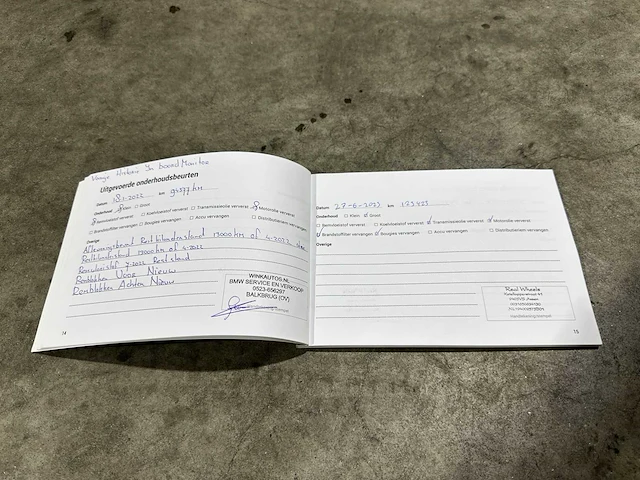 Vorige Historie In boord Monitor
Uitgevoerde onderhoudsbeurten
Datum 18-1-2022 km 94577 km
Onderhoud Klein Groot
Remvloeistof ververst Koelvloeistof ververst Transmissieolie ververst Motorolie ververst
Brandstoffilter vervangen Bougies vervangen Accu vervangen Distributieriem vervangen
Overige
Afleveringsbeurt Restkilometerstand 13000 km of 4-2022
Restkilometerstand 13000 km of 4-2022
Remvloeistof 7-2022 Reststand
Remblokken Voor Nieuw
Remblokken Achter Nieuw
WINKAUTOS.NL
BMW SERVICE EN VERKOOP
0523-656297
BALKBRUG (OV)
14
Datum 27-6-2023 km 123423
Onderhoud Klein Groot
Remvloeistof ververst Koelvloeistof ververst Transmissieolie ververst Motorolie ververst
Brandstoffilter vervangen Bougies vervangen Accu vervangen Distributieriem vervangen
Overige
Real Wheels
15